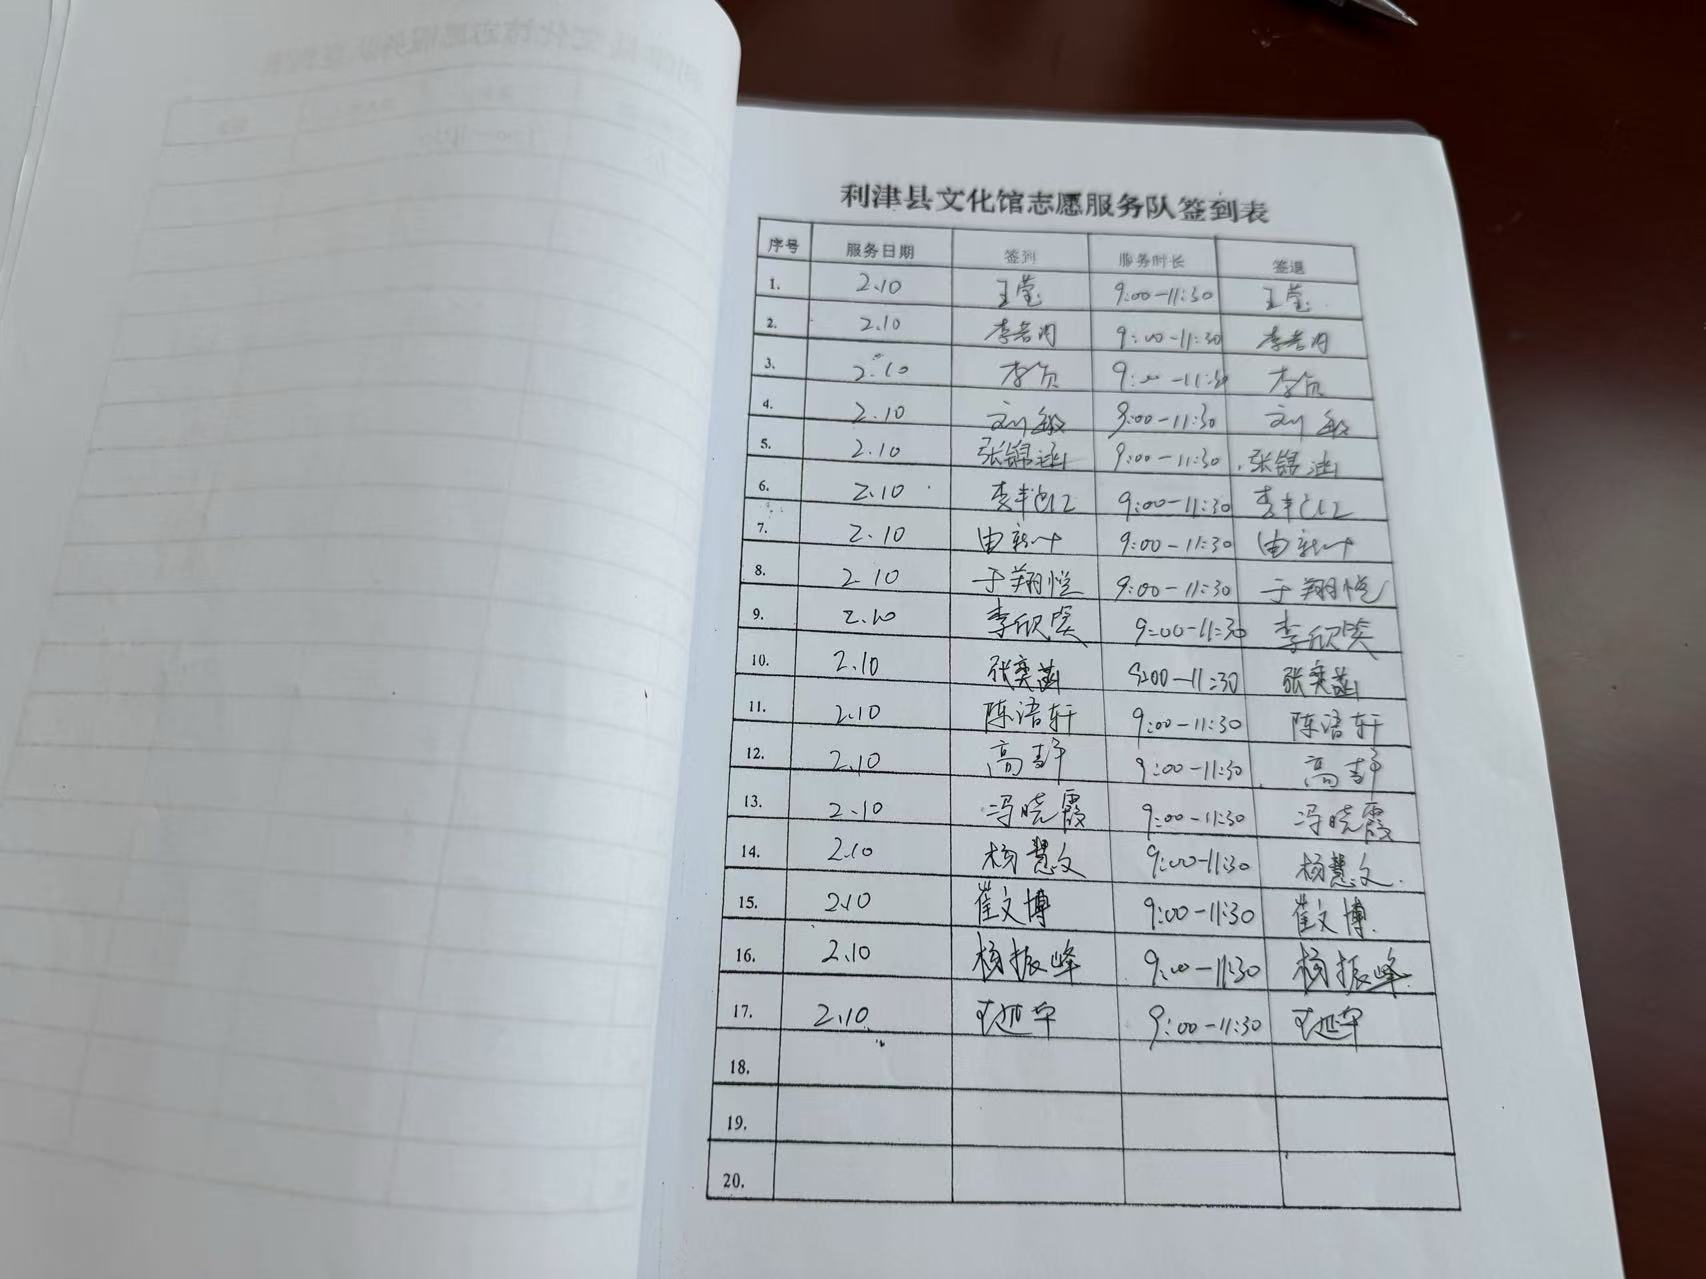 利津县文化馆志愿服务队签到表
序号 服务日期 签到 服务时长 签退
1. 2.10 王莹 9:00-11:30 王莹
2. 2.10 李若 9:00-11:30 李若
3. 2.10 李 9:00-11:30 李
4. 2.10 刘敏 9:00-11:30 刘敏
5. 2.10 张锦涵 9:00-11:30 张锦涵
6. 2.10 李 9:00-11:30 李
7. 2.10 由 9:00-11:30 由
8. 2.10 于翔悦 9:00-11:30 于翔悦
9. 2.10 李欣 9:00-11:30 李欣
10. 2.10 张奕菡 9:00-11:30 张奕菡
11. 2.10 陈语轩 9:00-11:30 陈语轩
12. 2.10 高静 9:00-11:30 高静
13. 2.10 冯晓霞 9:00-11:30 冯晓霞
14. 2.10 杨慧文 9:00-11:30 杨慧文
15. 2.10 崔文博 9:00-11:30 崔文博
16. 2.10 杨振峰 9:00-11:30 杨振峰
17. 2.10 9:00-11:30
18.
19.
20.